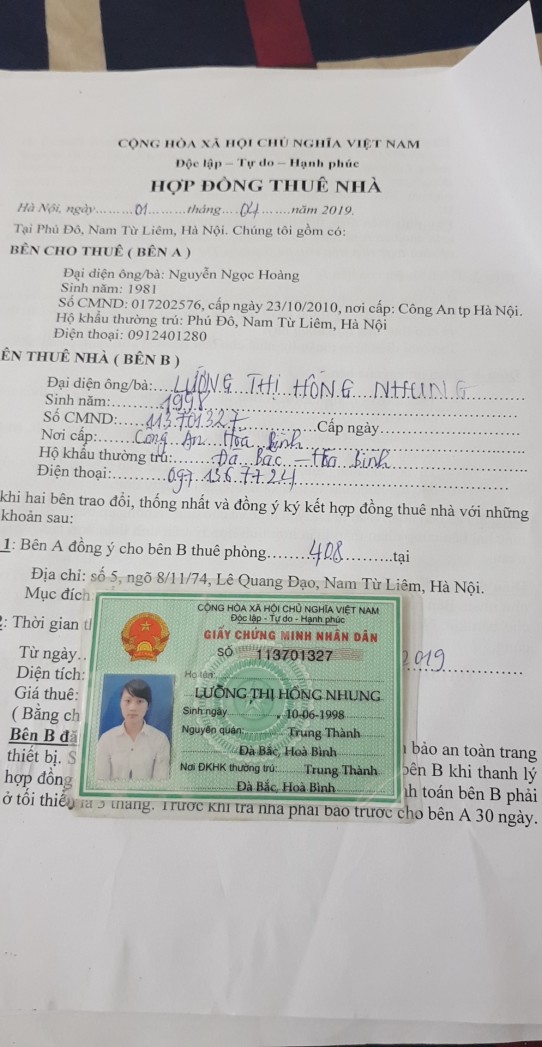 CỘNG HÒA XÃ HỘI CHỦ NGHĨA VIỆT NAM
Độc lập – Tự do – Hạnh phúc
HỢP ĐỒNG THUÊ NHÀ
Hà Nội, ngày.........01.........tháng....04.......năm 2019.
Tại Phú Đô, Nam Từ Liêm, Hà Nội. Chúng tôi gồm có:
BÊN CHO THUÊ ( BÊN A )
Đại diện ông/bà: Nguyễn Ngọc Hoàng
Sinh năm: 1981
Số CMND: 017202576, cấp ngày 23/10/2010, nơi cấp: Công An tp Hà Nội.
Hộ khẩu thường trú: Phú Đô, Nam Từ Liêm, Hà Nội
Điện thoại: 0912401280
ÊN THUÊ NHÀ ( BÊN B )
Đại diện ông/bà:...LƯỜNG THỊ HỒNG NHUNG
Sinh năm:.........1998
Số CMND:......113701327............Cấp ngày............
Nơi cấp:......Công An Hòa Bình
Hộ khẩu thường trú:.......Đà Bắc – Hòa Bình
Điện thoại:..........097.136.77.24
khi hai bên trao đổi, thống nhất và đồng ý ký kết hợp đồng thuê nhà với những
khoản sau:
1: Bên A đồng ý cho bên B thuê phòng.......408.........tại
Địa chỉ: số 5, ngõ 8/11/74, Lê Quang Đạo, Nam Từ Liêm, Hà Nội.
Mục đích
: Thời gian
Từ ngày.. 2019
Diện tích:
Giá thuê:
( Bằng ch
Bên B đã bảo an toàn trang
thiết bị. S bên B khi thanh lý
hợp đồng h toán bên B phải
ở tối thiểu là 3 tháng. Trước khi trả nhà phải báo trước cho bên A 30 ngày.
CỘNG HÒA XÃ HỘI CHỦ NGHĨA VIỆT NAM
Độc lập - Tự do - Hạnh phúc
GIẤY CHỨNG MINH NHÂN DÂN
SỐ 113701327
Họ tên:
LƯỜNG THỊ HỒNG NHUNG
Sinh ngày 10-06-1998
Nguyên quán: Trung Thành
Đà Bắc, Hoà Bình
Nơi ĐKHK thường trú: Trung Thành
Đà Bắc, Hoà Bình